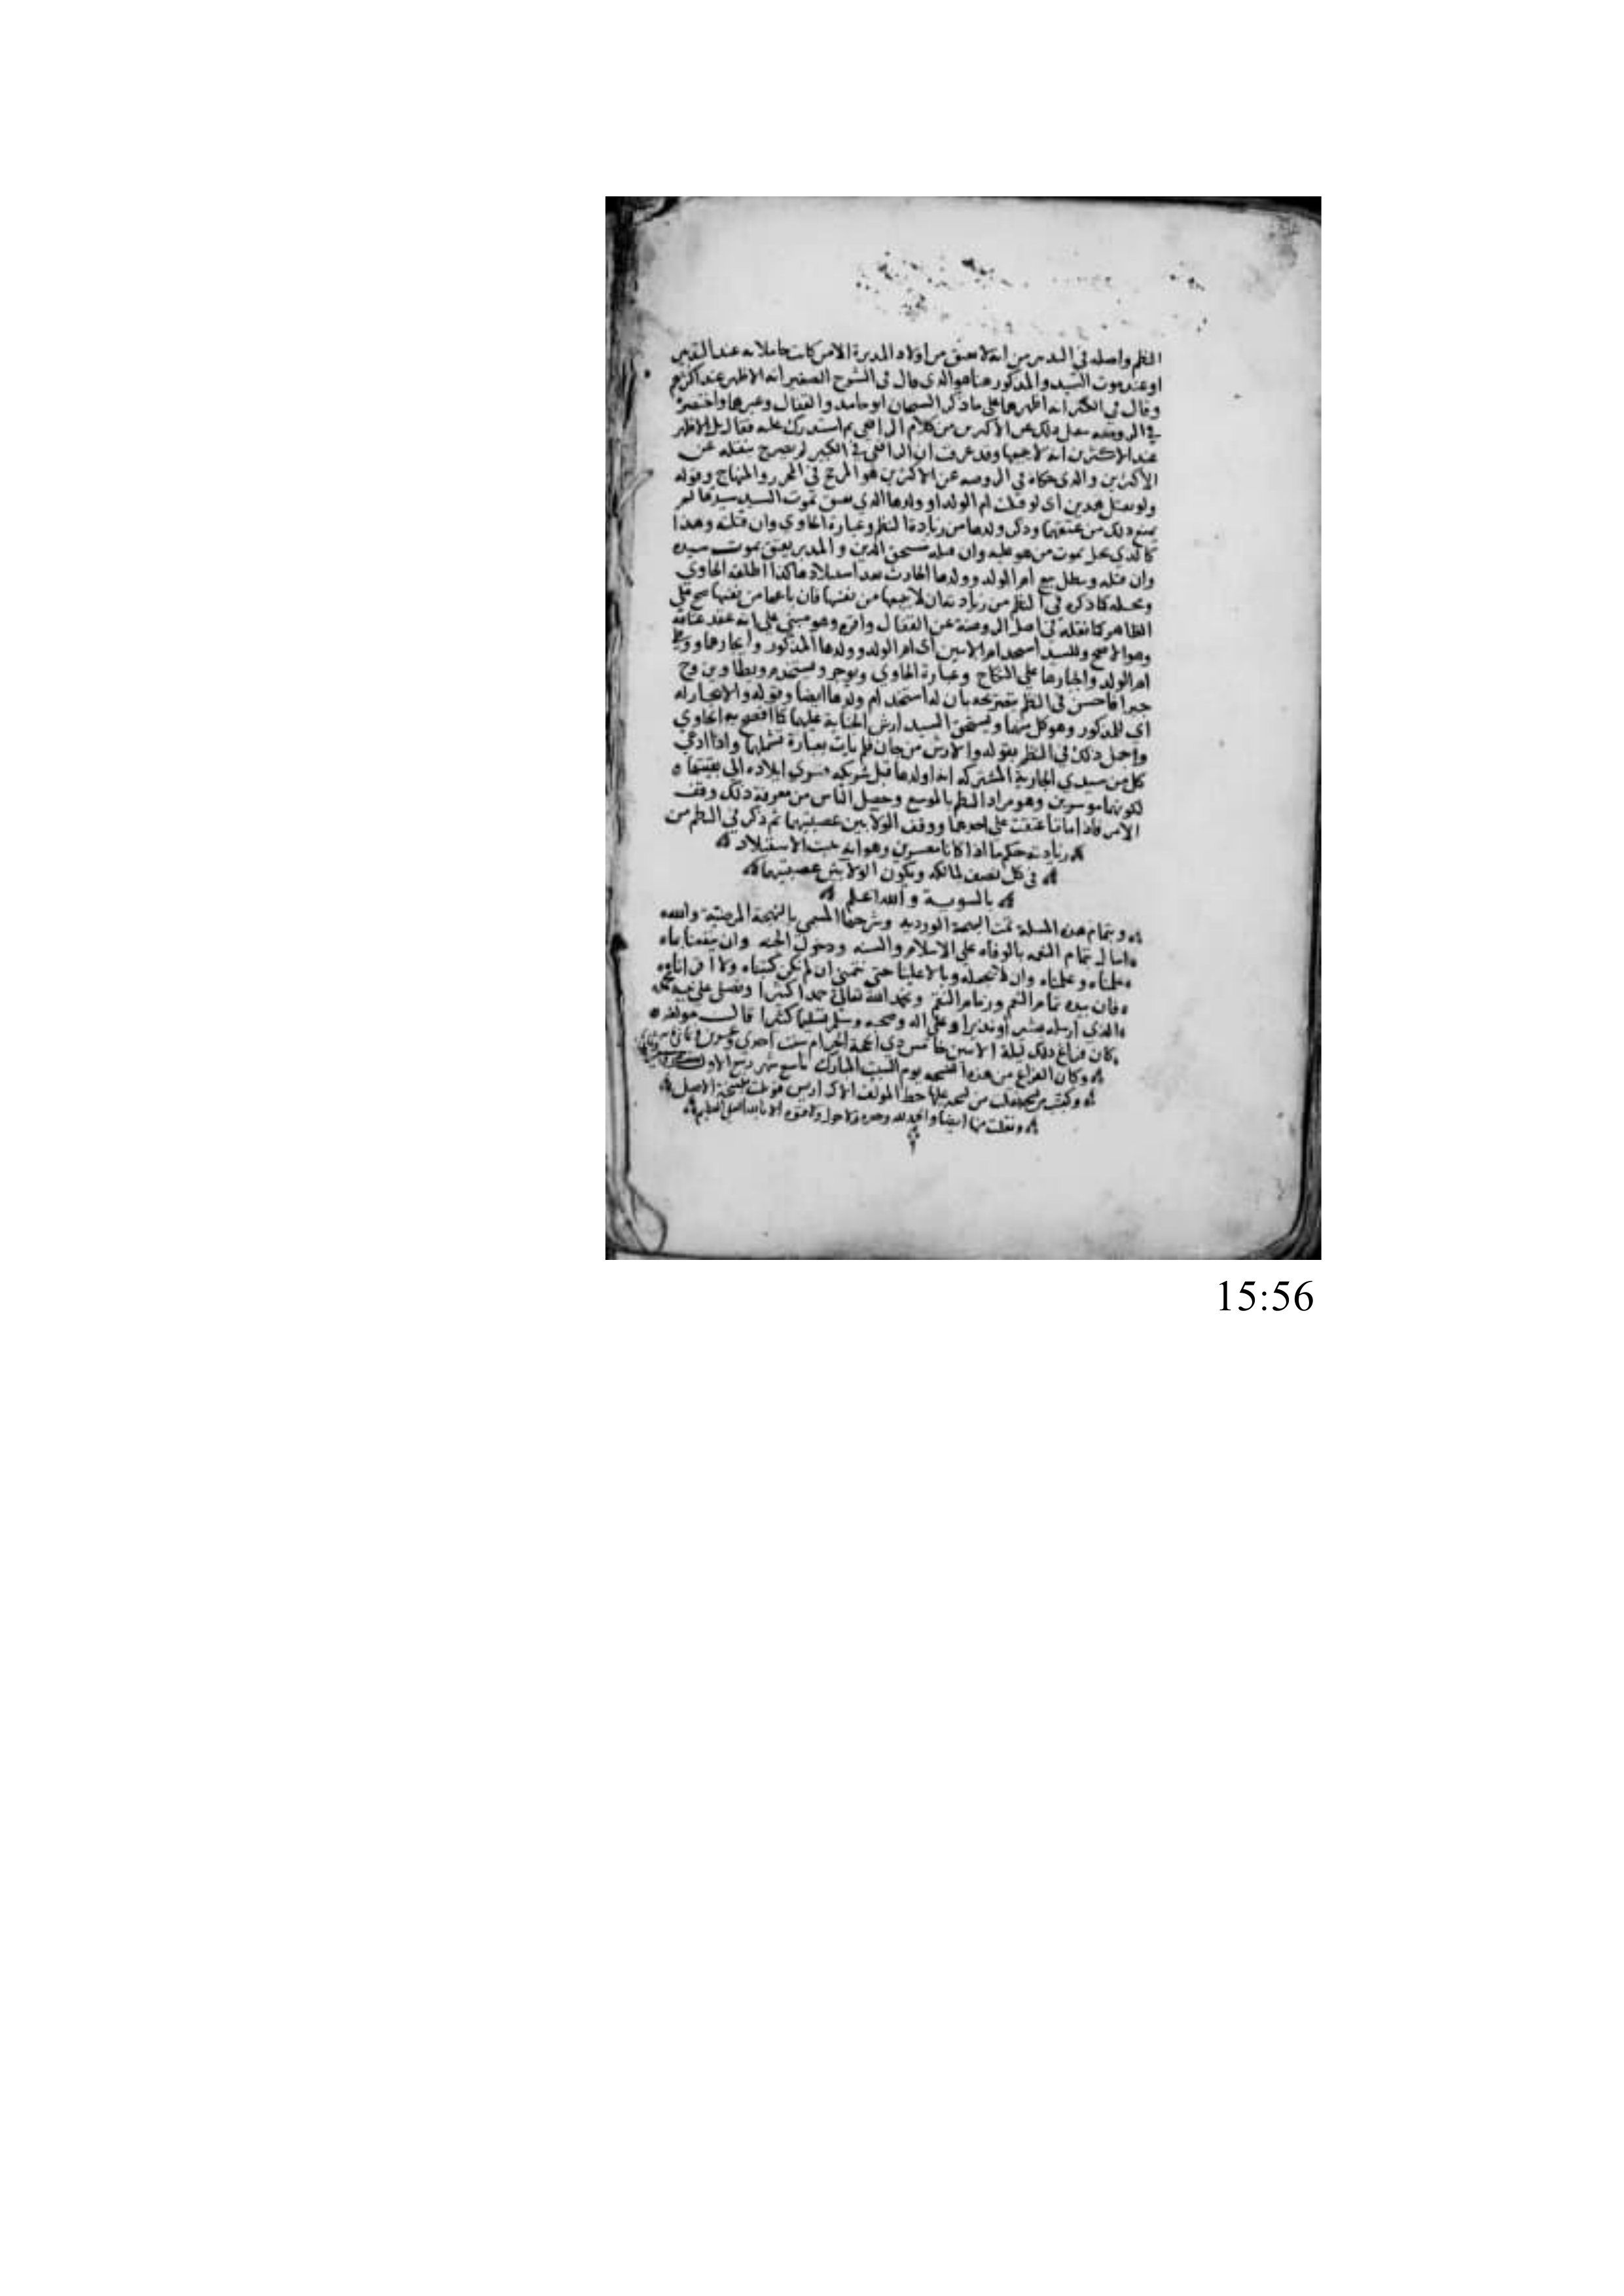 النظم واصله في التدبير من انه لا يعتق من اولاد المدبرة الا من كانت حاملا به عند التدبير
او عند موت السيد والمذكور هنا هو الذي قال في الشرح الصغير انه الاظهر عند اكثرهم
وقال في الكبير انه اظهرهما على ما ذكر الشيخان ابو حامد والقفال وغيرهما واختصره
في الروضة بنقل ذلك عن الاكثرين من كلام الرافعي ثم استدرك عليه فقال بل الاظهر
عند الاكثرين انه لا يتبعها وقد عرف ان الرافعي في الكبير لم يصرح بنقله عن
الاكثرين والذي حكاه في الروضة عن الاكثرين هو المرجح في المحرر والمنهاج وقوله
ولو بقتل هذين اي لو قتلت ام الولد او ولدها الذي يعتق بموت السيد سيدها لم
يمنع ذلك من عتقهما وذكر ولدها من زيادة النظم وعبارة الحاوي وان قتلته وهذا
كالدين يحل بموت من هو عليه وان قتله مستحق الدين والمدبر يعتق بموت سيده
وان قتله ويبطل بيع ام الولد وولدها الحادث بعد استيلادها كذا اطلقه الحاوي
ومحله كما ذكره في النظم من زيادته ان لا يبيعها من نفسها فان باعها من نفسها صح على
الظاهر كما نقله في اصل الروضة عن القفال واقره وهو مبني على انه عقد عتاقة
وهو الاصح وللسيد استخدام الاثنين اي ام الولد وولدها المذكور وايجارهما ووطء
ام الولد واجبارها على النكاح وعبارة الحاوي ويوجر ويستخدم ويطا ويزوج
جبرا فاحسن في النظم بتصريحه بان له استخدام ولدها ايضا وقوله والايجار له
اي للمذكور وهو كل منهما ويستحق السيد ارش الجناية عليهما كما افصح به الحاوي
واجمل ذلك في النظم بقوله والارش من جان فلم يات بعبارة تشملها واذا ادعى
كل من سيدي الجارية المشتركة انه اولدها قبل شريكه فسرى ايلاده الى بقيتها
لكونهما موسرين وهو مراد النظم بالموسع وحصل الياس من معرفة ذلك وقف
الامر فاذا ماتا عتقت على احدهما ووقف الولا بين عصبتيهما ثم ذكر في النظم من
زيادته حكم ما اذا كانا معسرين وهو انه يثبت الاستيلاد
في كل نصف لمالكه ويكون الولا بين عصبتيهما
بالسوية والله اعلم
وبتمام هذه المسلة تمت البهجة الوردية وشرحها المسمى بالنهجة المرضية والله
اسال تمام النعمة بالوفاة على الاسلام والسنة ودخول الجنة وان ينفعنا بما
علمناه وعلمناه وان لا يجعله وبالا علينا حتى نتمنى ان لم نكن كتبناه ولا
فان بيده تمام النعم وزمام النقم ونحمد الله تعالى حمدا كثيرا ونصلي على نبيه محمد
الذي ارسله بشيرا ونذيرا وعلى اله وصحبه وسلم تسليما كثيرا قال مولفه
كان فراغ ذلك ليلة الاثنين خامس ذي الحجة الحرام سنة احدى وعشرين وثمانمائة
وكان الفراغ من هذه النسخة يوم السبت المبارك تاسع شهر ربيع الاول
وكتبت من نسخة نقلت من نسخة عليها خط المولف قوبلت بنسخة الاصل
ونقلت منها ايضا والحمد لله وحده ولا حول ولا قوة الا بالله العلي العظيم
15:56